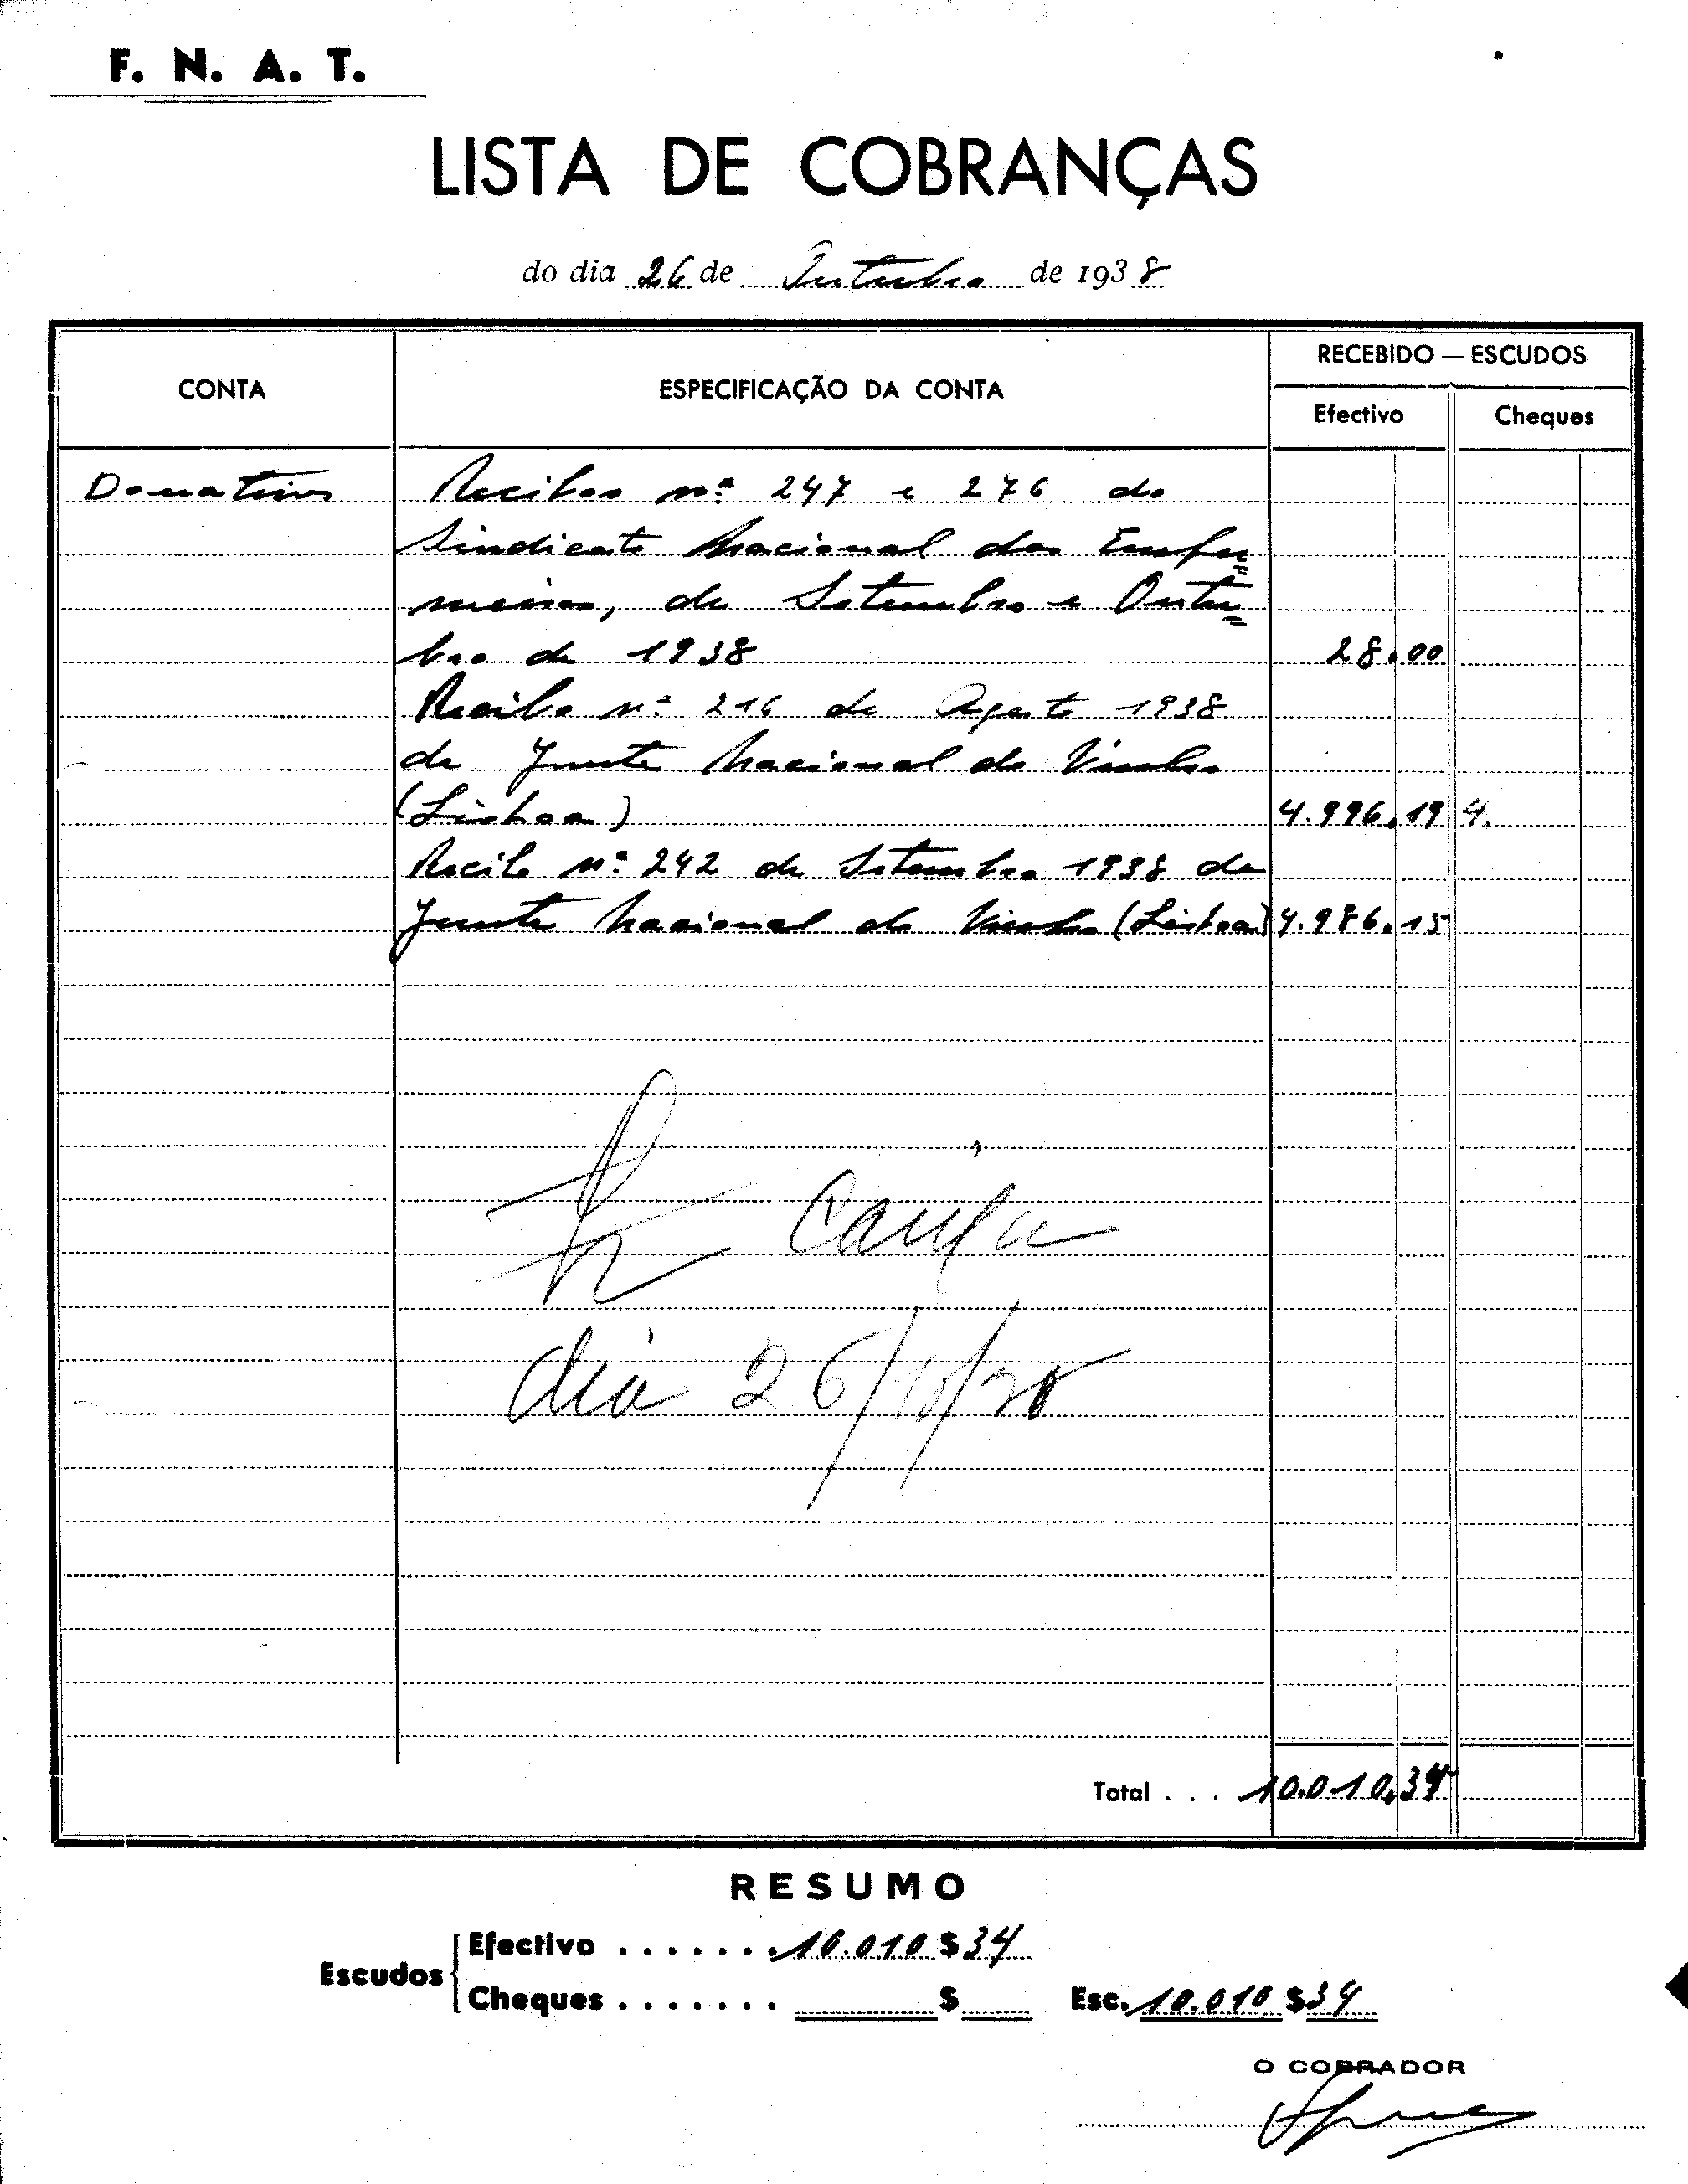 F. N. A. T.
LISTA DE COBRANÇAS
do dia 26 de Outubro de 1938
CONTA
ESPECIFICAÇÃO DA CONTA
RECEBIDO — ESCUDOS
Efectivo
Cheques
Donativos Recibos nº 247 e 276 do
Sindicato Nacional dos Enfer
meiros, de Setembro e Outu
bro de 1938 28.00
Recibo nº 216 de Agosto 1938
da Junta Nacional do Vinho
(Lisboa) 4.996.19 4.
Recibo nº 242 de Setembro 1938 da
Junta Nacional do Vinho (Lisboa) 4.986.15
Caixa
dia 26/10/38
Total . . . 10.010.34
RESUMO
Efectivo . . . . . . . 10.010 $ 34
Escudos
Cheques . . . . . . . $ Esc. 10.010 $ 34
O COBRADOR